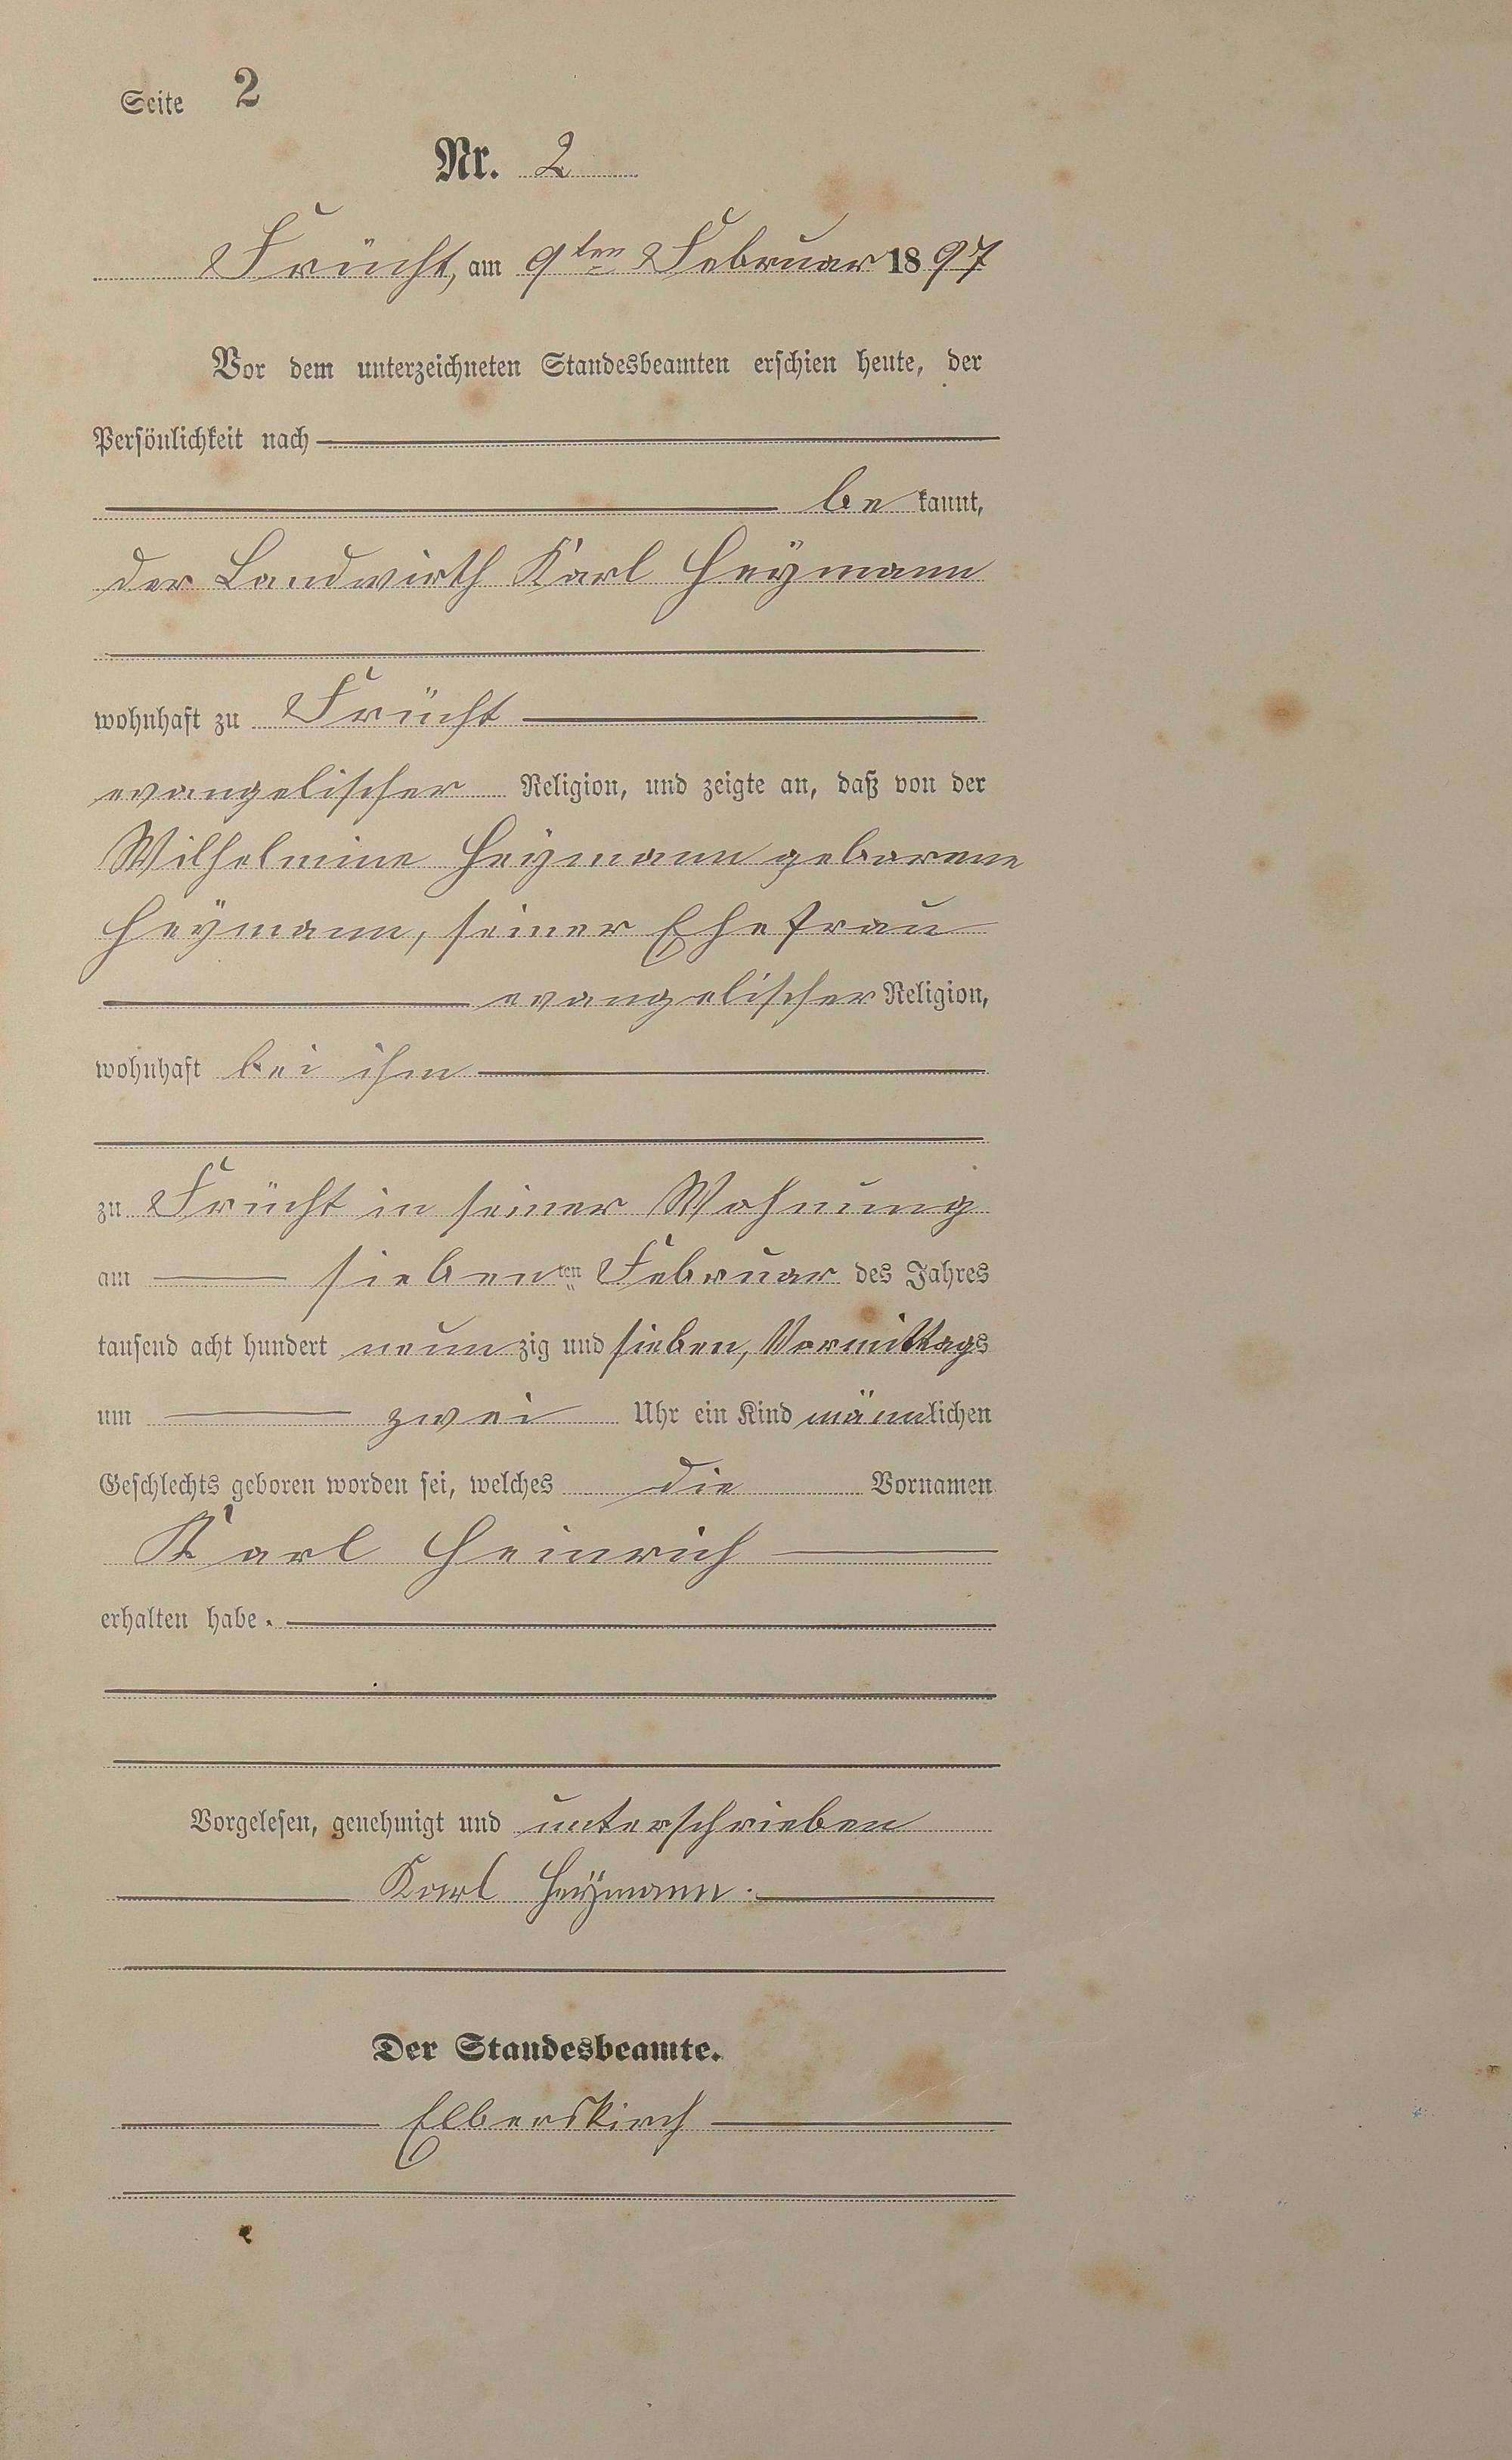 Seite 2
Nr. 2
Frücht, am 9ten Februar 1897
Vor dem unterzeichneten Standesbeamten erschien heute, der
Persönlichkeit nach
be kannt,
der Landwirth Karl Heymann
wohnhaft zu Frücht
evangelischer Religion, und zeigte an, daß von der
Wilhelmine Heymann geborenen
Heymann, seiner Ehefrau
evangelischer Religion,
wohnhaft bei ihm
zu Frücht in seiner Wohnung
am siebenten Februar des Jahres
tausend acht hundert neunzig und sieben, Vormittags
um zwei Uhr ein Kind männlichen
Geschlechts geboren worden sei, welches die Vornamen
Karl Heinrich
erhalten habe.
Vorgelesen, genehmigt und unterschrieben
Karl Heymann.
Der Standesbeamte.
Elberskirch